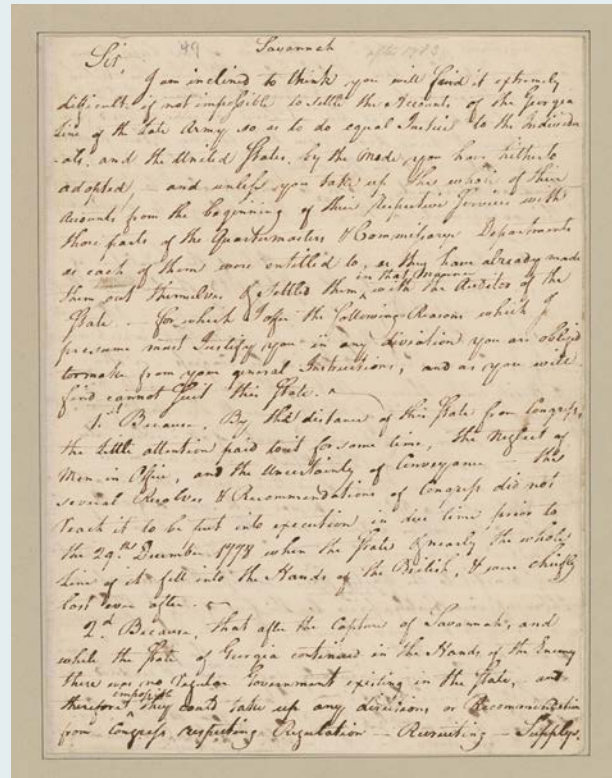 99 Savannah after 1783
Sir
I am inclined to think you will find it extremely
difficult if not impossible to settle the Accounts of the Georgia
Line of the Late Army so as to do equal Justice to the Individu
-als, and the United States, by the Mode you have hitherto
adopted, and unless you take up the whole of their
Accounts from the beginning of their Respective Services with
those parts of the Quartermasters & Commissarys Departments
as each of them were entitled to, as they have already made
them out themselves & settled them in that manner with the Auditor of the
State — for which I offer the following Reasons which I
presume must Justify you in any diviation you are oblig'd
to make from your general Instructions, and as you will
find cannot suit this State. —
1st Because, By the distance of this State from Congress,
the little attention paid to it for some time, the Neglect of
Men in Office, and the Uncertainty of Conveyance the
several Resolves & Recommendations of Congress did not
reach it to be put into execution in due time prior to
the 29th December 1778 when the State & nearly the whole
Line of it fell into the Hands of the British, & were chiefly
lost ever after. —
2d Because, that after the Capture of Savannah, and
while the State of Georgia continued in the Hands of the Enemy
there was no regular Government existing in the State, and
therefore impossible they could take up any directions or Recommendation
from Congress respecting Regulation — Recruiting — Supplys